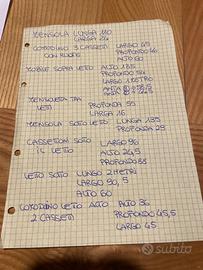 MENSOLA LUNGA 110
LARGA 24
COMODINO 3 CASSETTI LARGO 45
CON RUOTE PROFONDO 46
ALTO 60
MOBILE SOPRA LETTO ALTO 185
PROFONDO 54
LARGO 1 METRO
MENSOLETTA TRA PROFONDA 55
LETTI LARGA 16
MENSOLA SOTTO LETTO LARGA 135
PROFONDA 25
CASSETTONI SOTTO LARGO 96
IL LETTO ALTO 24,5
PROFONDO 85
LETTO SOTTO LUNGO 2 METRI
LARGO 90,5
ALTO 60
COMODINO LETTO ALTO ALTO 86
2 CASSETTI PROFONDO 45,5
LARGO 45
subito